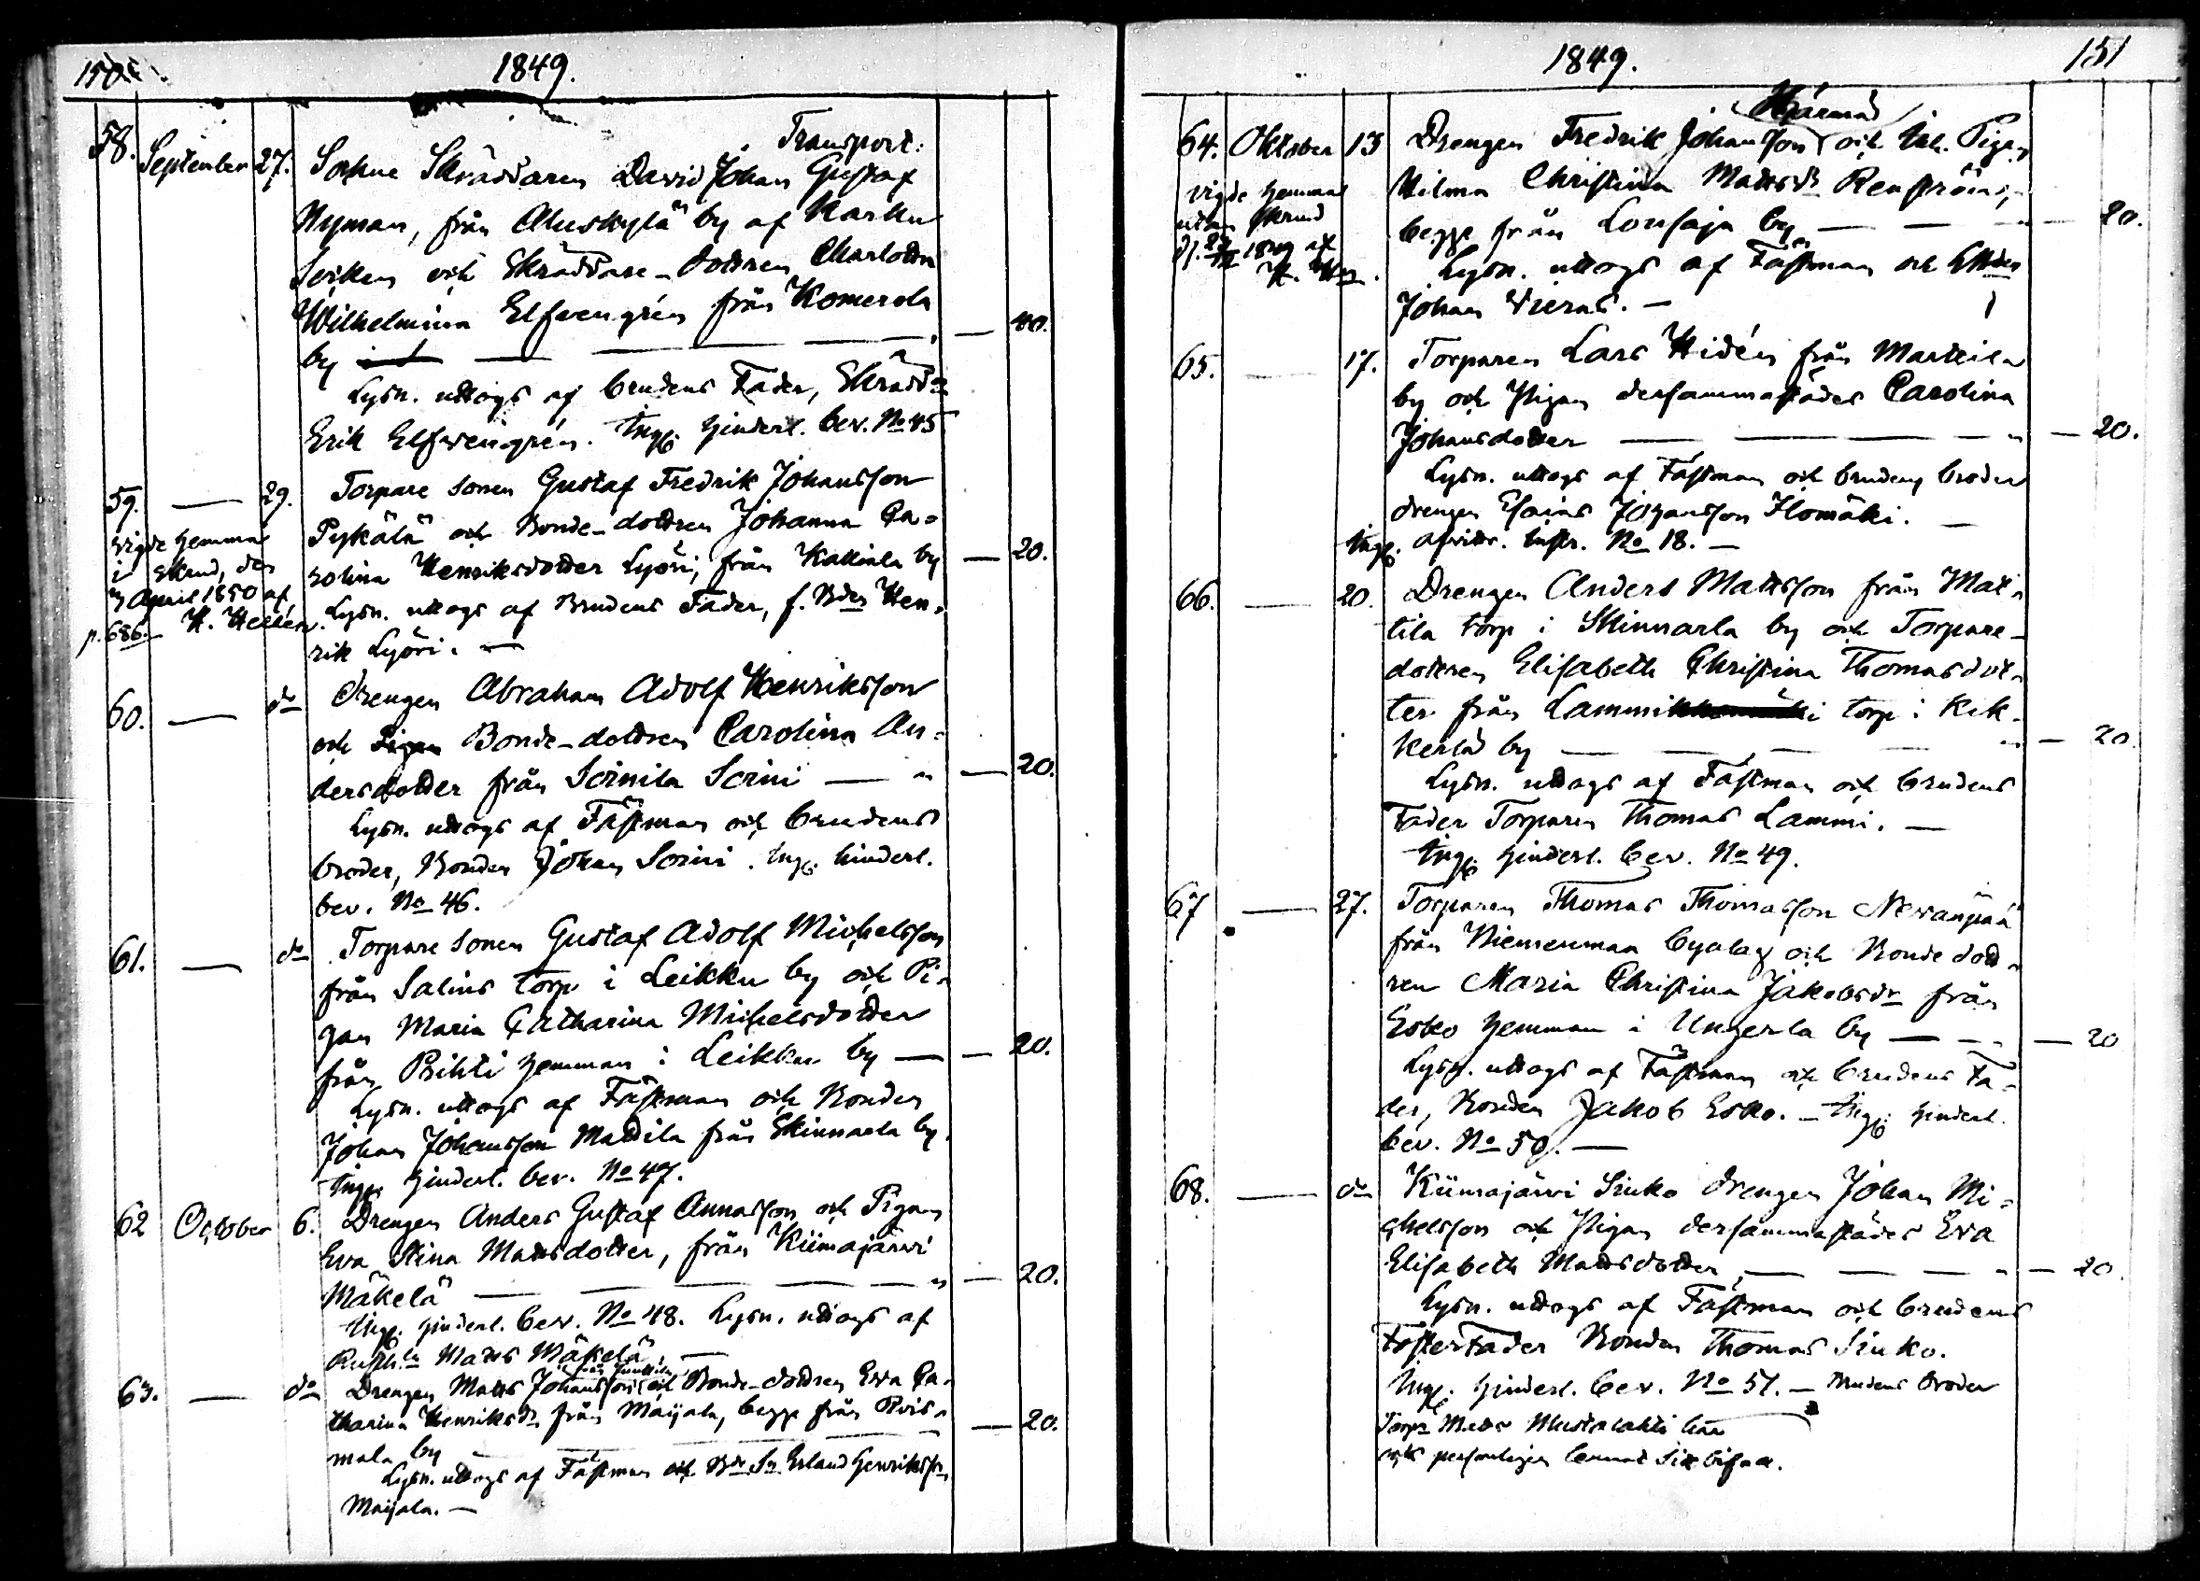 150
1849.
Transport.
58. September 27. Sokne Skräddaren David Johan Gustaf
Nyman, från Aluskylä by af Karku
Socken och Skräddare-dottren Charlotta
Wilhelmina Elfvengrén från Komerola
by — 40.
Lysn. uttogs af brudens Fader, Skrädd
Erik Elfvengrén. Ingg. hinderl. bev. No 45
59. — 29. Torpare sonen Gustaf Fredrik Johansson
Pykälä och Bonde-dottren Johanna Ca-
rolina Henriksdotter Lyöri, från Kallială by — 20.
Vigde hemma
i Skrud, den
7 April 1850 af
p. 686. H. Hellén.
Lysn. uttogs af Brudens Fader, f. Bden Hen-
rik Lyöri. —
60. — do Drengen Abraham Adolf Henriksson
och Bonde-dottren Carolina An-
dersdotter från Soinila Soini — " — 20.
Lysn. uttogs af Fästman och brudens
broder, Bonden Johan Soini. Ingg. hinderl.
bev. No 46.
61. — do Torpare sonen Gustaf Adolf Michelsson
från Salins torp i Leikku by och Pi-
gan Maria Catharina Michelsdotter
från Prihti hemman i Leikku by — — 20.
Lysn. uttogs af Fästman och Bonden
Johan Johansson Mattila från Skinnarla by.
Ingg. hinderl. bev. No 47.
62 October 6. Drengen Anders Gustaf Annasson och Pigan
Eva Stina Mattsdotter, från Kiimajärwi
Mäkelä — — — — " — 20.
Ingg. hinderl. bev. No 48. Lysn. uttogs af
Rusth. Matts Mäkelä. —
63. — do Drengen Matts Johansson från Junttila och Bonde-dottren Eva Ca-
tharina Henriksdr från Maijala, begge från Rois-
mala by — 20.
Lysn. uttogs af Fästman och Bde Sn Erland Henriksson
Maijala. —
1849.
151
64. Oktober 13 Drengen Fredrik Johansson och Inh. Pigan
Wilma Christina Mattsdr Renström,
begge från Lousaja by — — " — 20.
vigde hemma
utan Skrud
1849 af
Lysn. uttogs af Fästman och
Johan Vieras. —
65. — 17. Torparen Lars Widén från Markila
by och Pigan dersammastädes Carolina
Johansdotter — — — " — 20.
Lysn. uttogs af Fästman och brudens broder
drengen Esaias Johansson Ilomäki. —
Ingg. afvittr. Instr. No 18. —
66. — 20. Drengen Anders Mattsson från Mat-
tila torp i Skinnarla by och Torpare-
dottren Elisabeth Christina Thomasdot-
ter från Lammi torp i Kik-
kerlä by — — — " — 20
Lysn. uttogs af Fästman och brudens
Fader Torparen Thomas Lammi. —
Ingg. hinderl. bev. No 49.
67 — 27. Torparen Thomas Thomasson Nevanpää
från Niemenmaa byalag och Bonde dott-
ren Maria Christina Jakobsdr från
Esko hemman i Ungerla by — — — 20
Lysn. uttogs af Fästman och brudens Fa-
der, Bonden Jakob Esko. — Ingg. hinderl.
bev. No 50. —
68. — do Kiimajärwi Sinko drengen Johan Mi-
chelsson och Pigan dersammastädes Eva
Elisabeth Mattsdotter, — — — " — 20.
Lysn. uttogs af Fästman och brudens
FosterFader Bonden Thomas Sinko.
Ingg. hinderl. bev. No 51. — Brudens broder
Torpn Matts Mustalahti har
personligen lemnat sitt bifall.